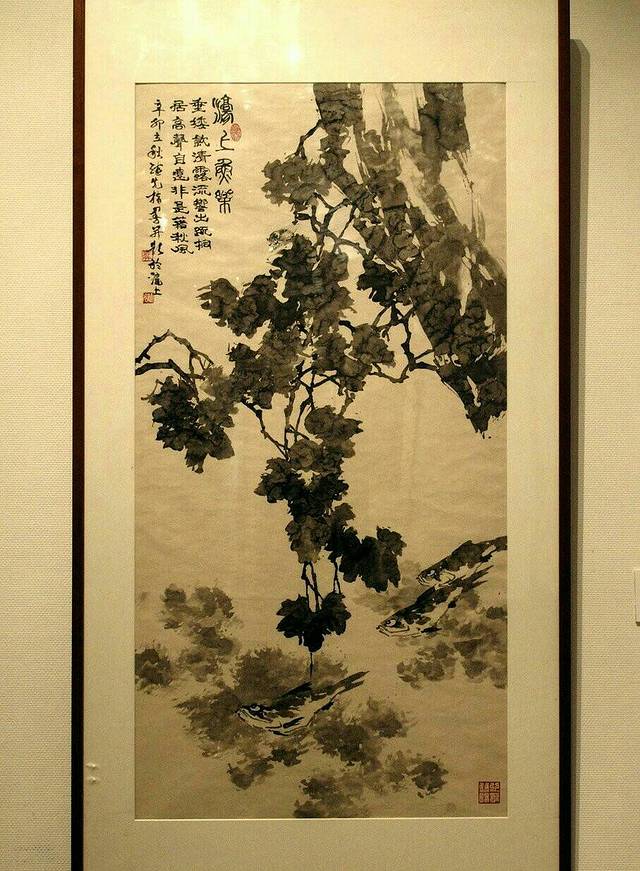 濠上魚樂
垂緌飲清露流響出疏桐
居高聲自遠非是藉秋風
辛卯立秋先指墨并題於滬上